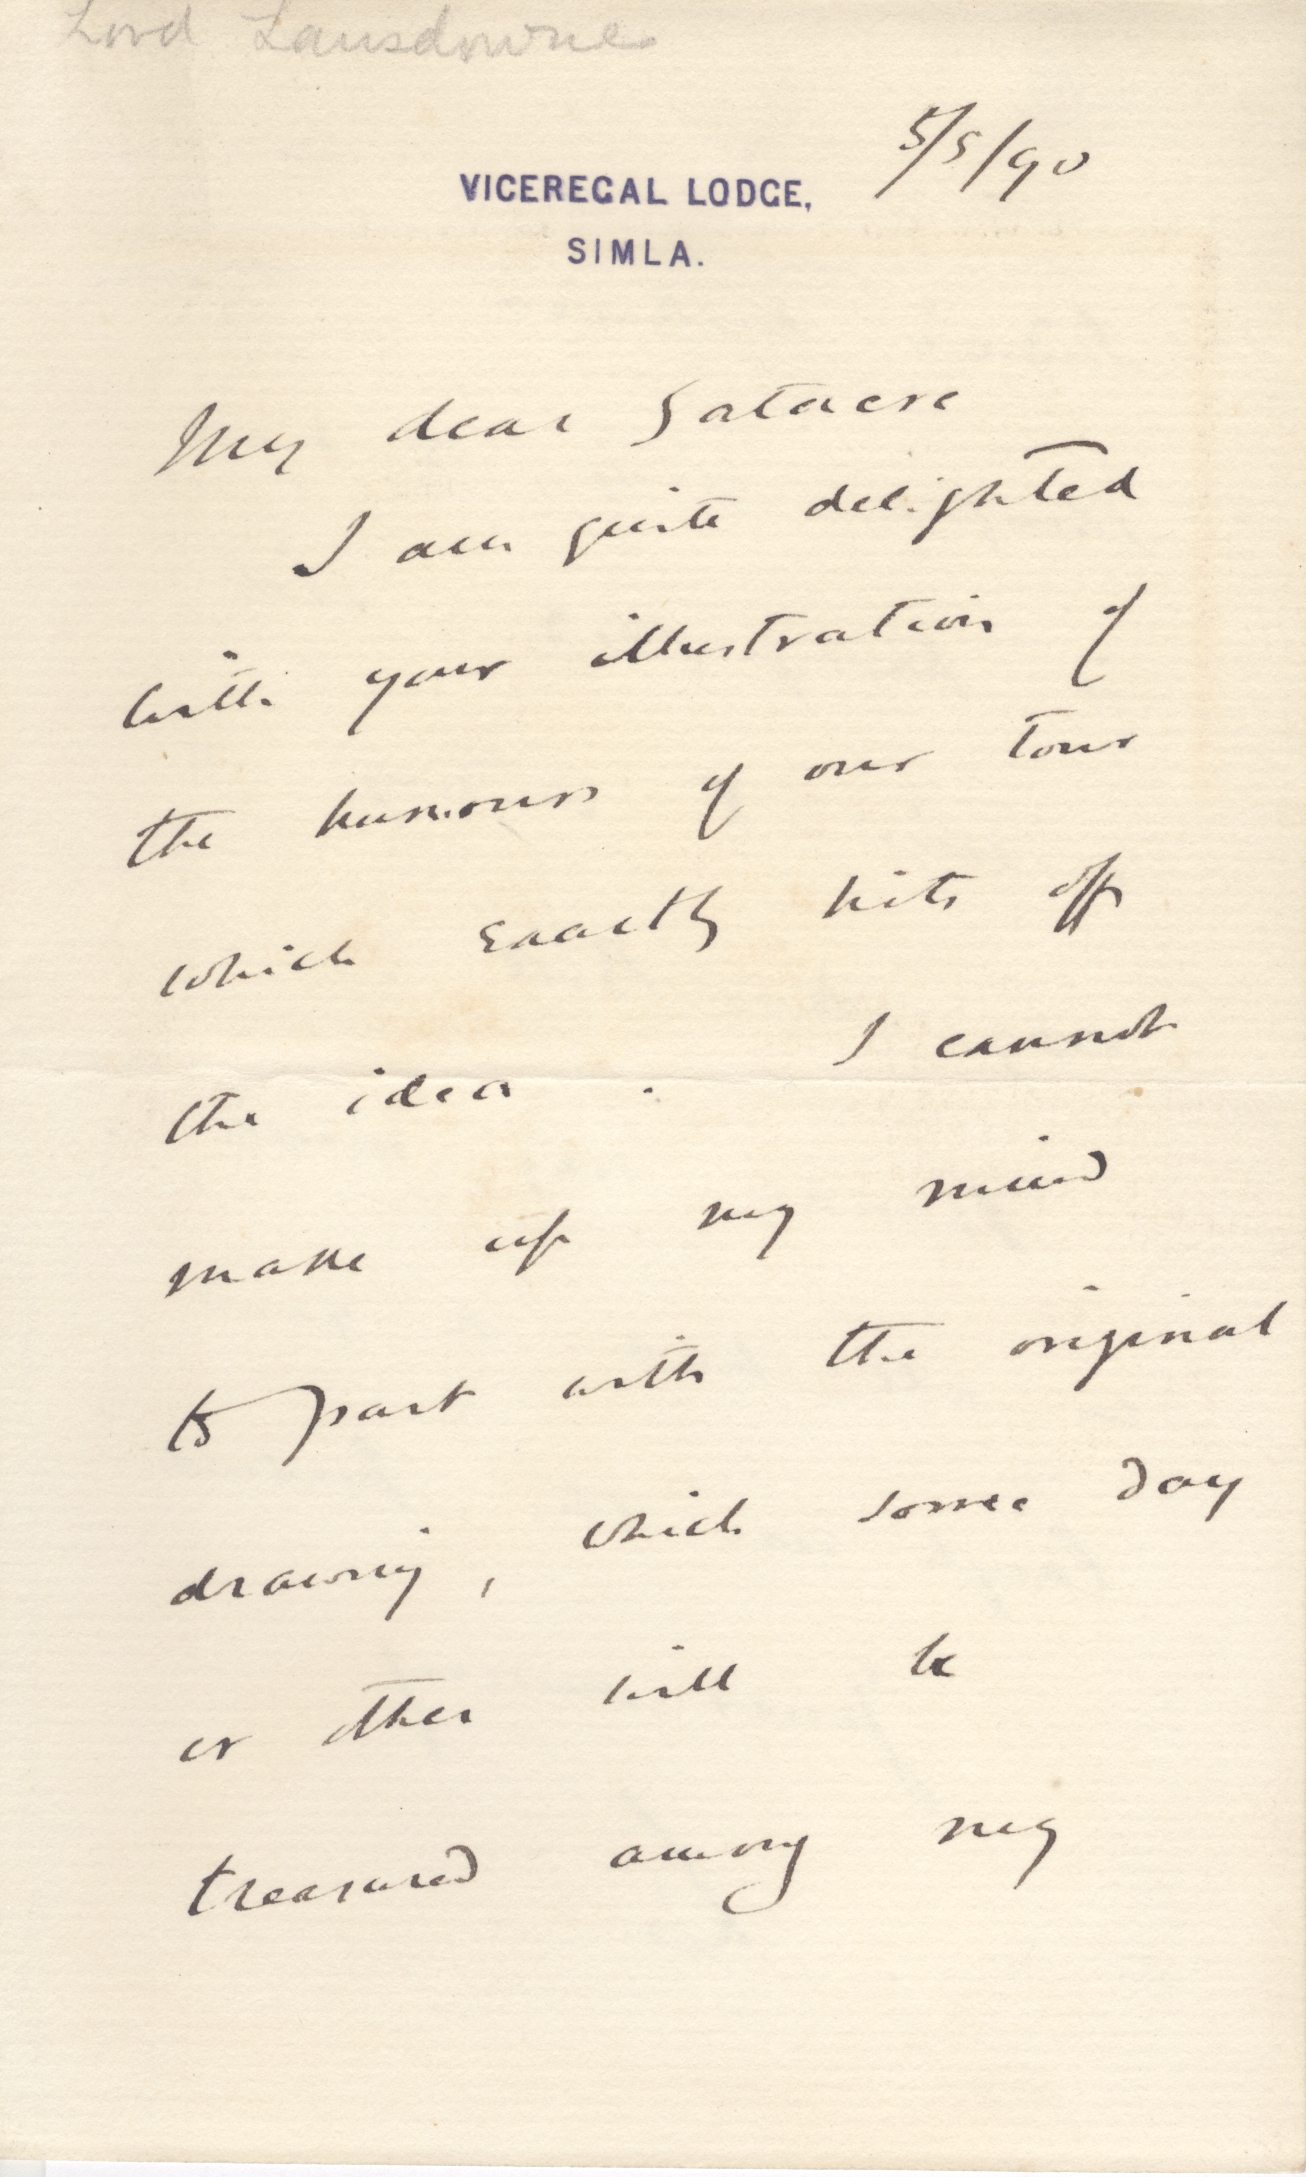 Lord Lansdowne
5/5/90
VICEREGAL LODGE,
SIMLA.
My dear Gatacre
I am quite delighted
with your illustration of
the humours of our tour
which exactly hits off
the idea. I cannot
make up my mind
to part with the original
drawing, which some day
or other will be
treasured among my